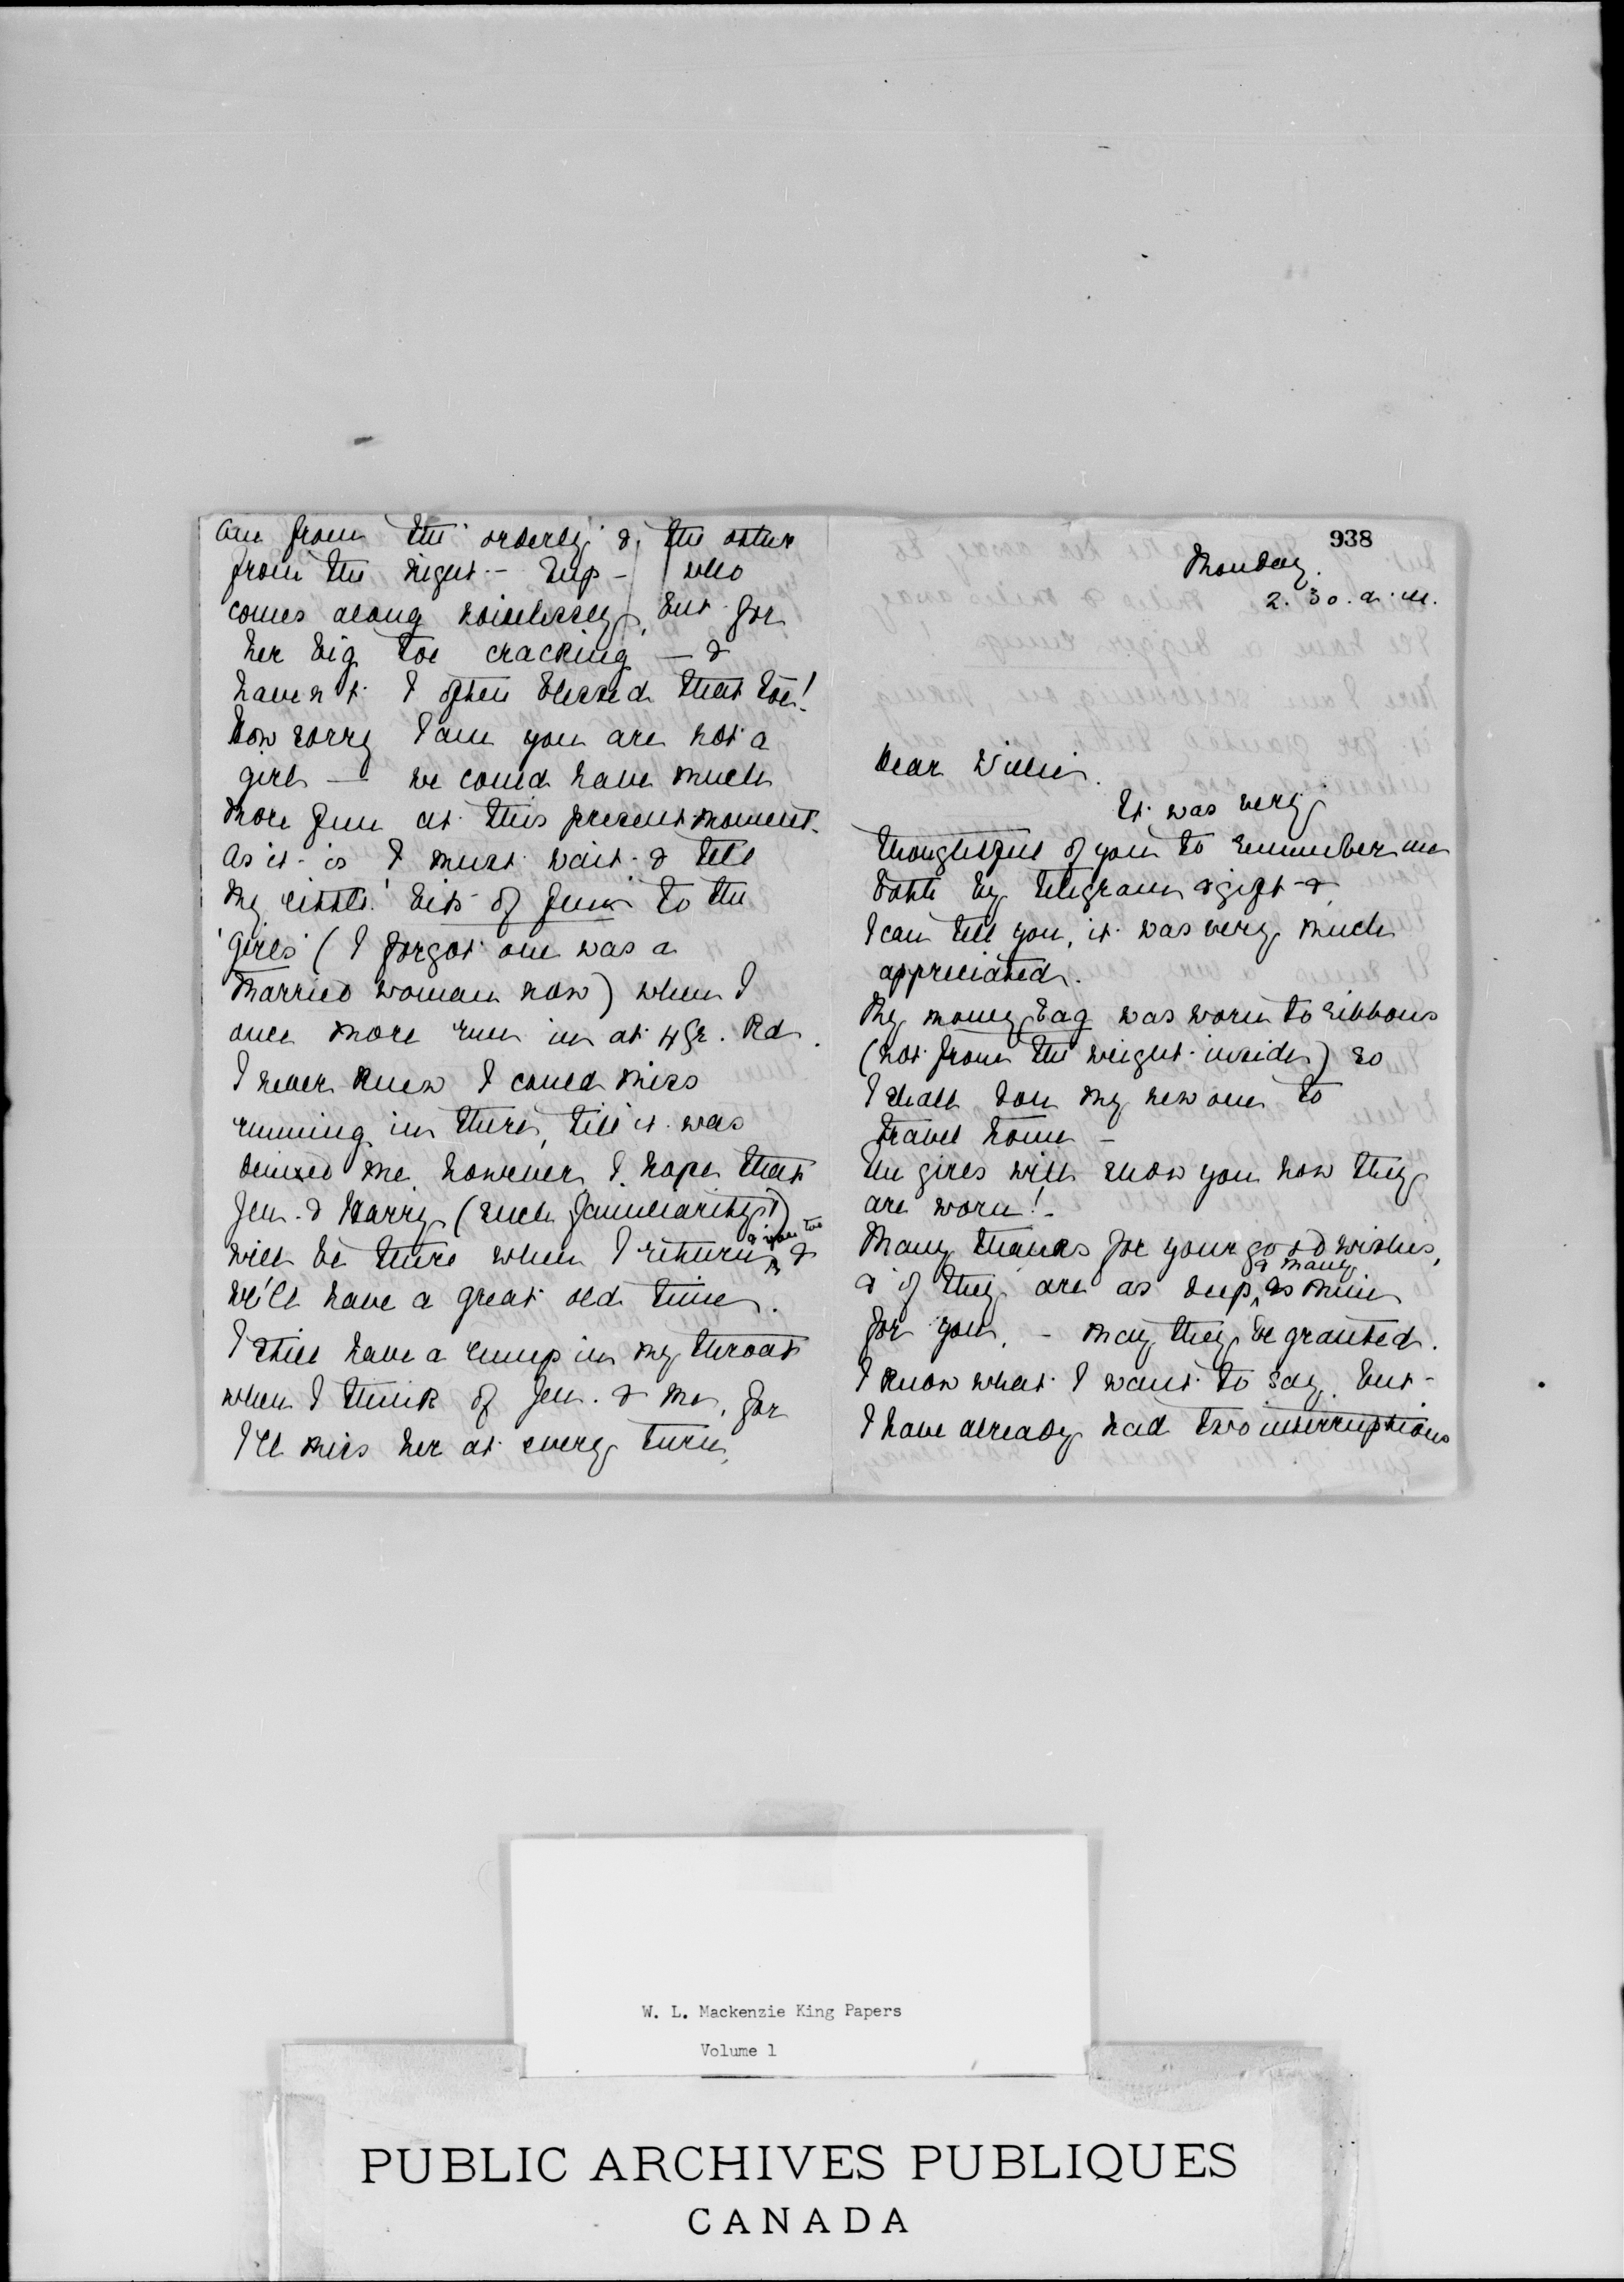 938
Monday.
2.30. a.m.
Dear Willie.
It was very
thoughtful of you to remember me
both by telegram & gift &
I can tell you, it was very much
appreciated.
My money bag was worn to ribbons
(not from the weight inside) so
I shall don my new one to
travel home -
The girls will show you how they
are worn!
Many thanks for your good wishes,
& if they are as deep & many as mine
for you, - may they be granted.
I know what I want to say. but -
I have already had two interruptions
one from the 'orderly' & the other
from the night - Sup - who
comes along noiselessly, but for
her big toe cracking - &
haven't I often blessed that toe!
How sorry I am you are not a
girl - we could have much
more fun at this present moment.
As it is I must wait & tell
my little 'bits of fun' to the
'girls' (I forgot one was a
married woman now) when I
once more run in at 4 Gr. Rd.
I never knew I could miss
running in there, till it was
denied me. however I hope that
Jen. & Harry (such familiarity!)
will be there when I return & you too &
we'll have a great old time.
I still have a lump in my throat
when I think of Jen. & me, for
I'll miss her at every turn,
W. L. Mackenzie King Papers
Volume 1
PUBLIC ARCHIVES PUBLIQUES
CANADA